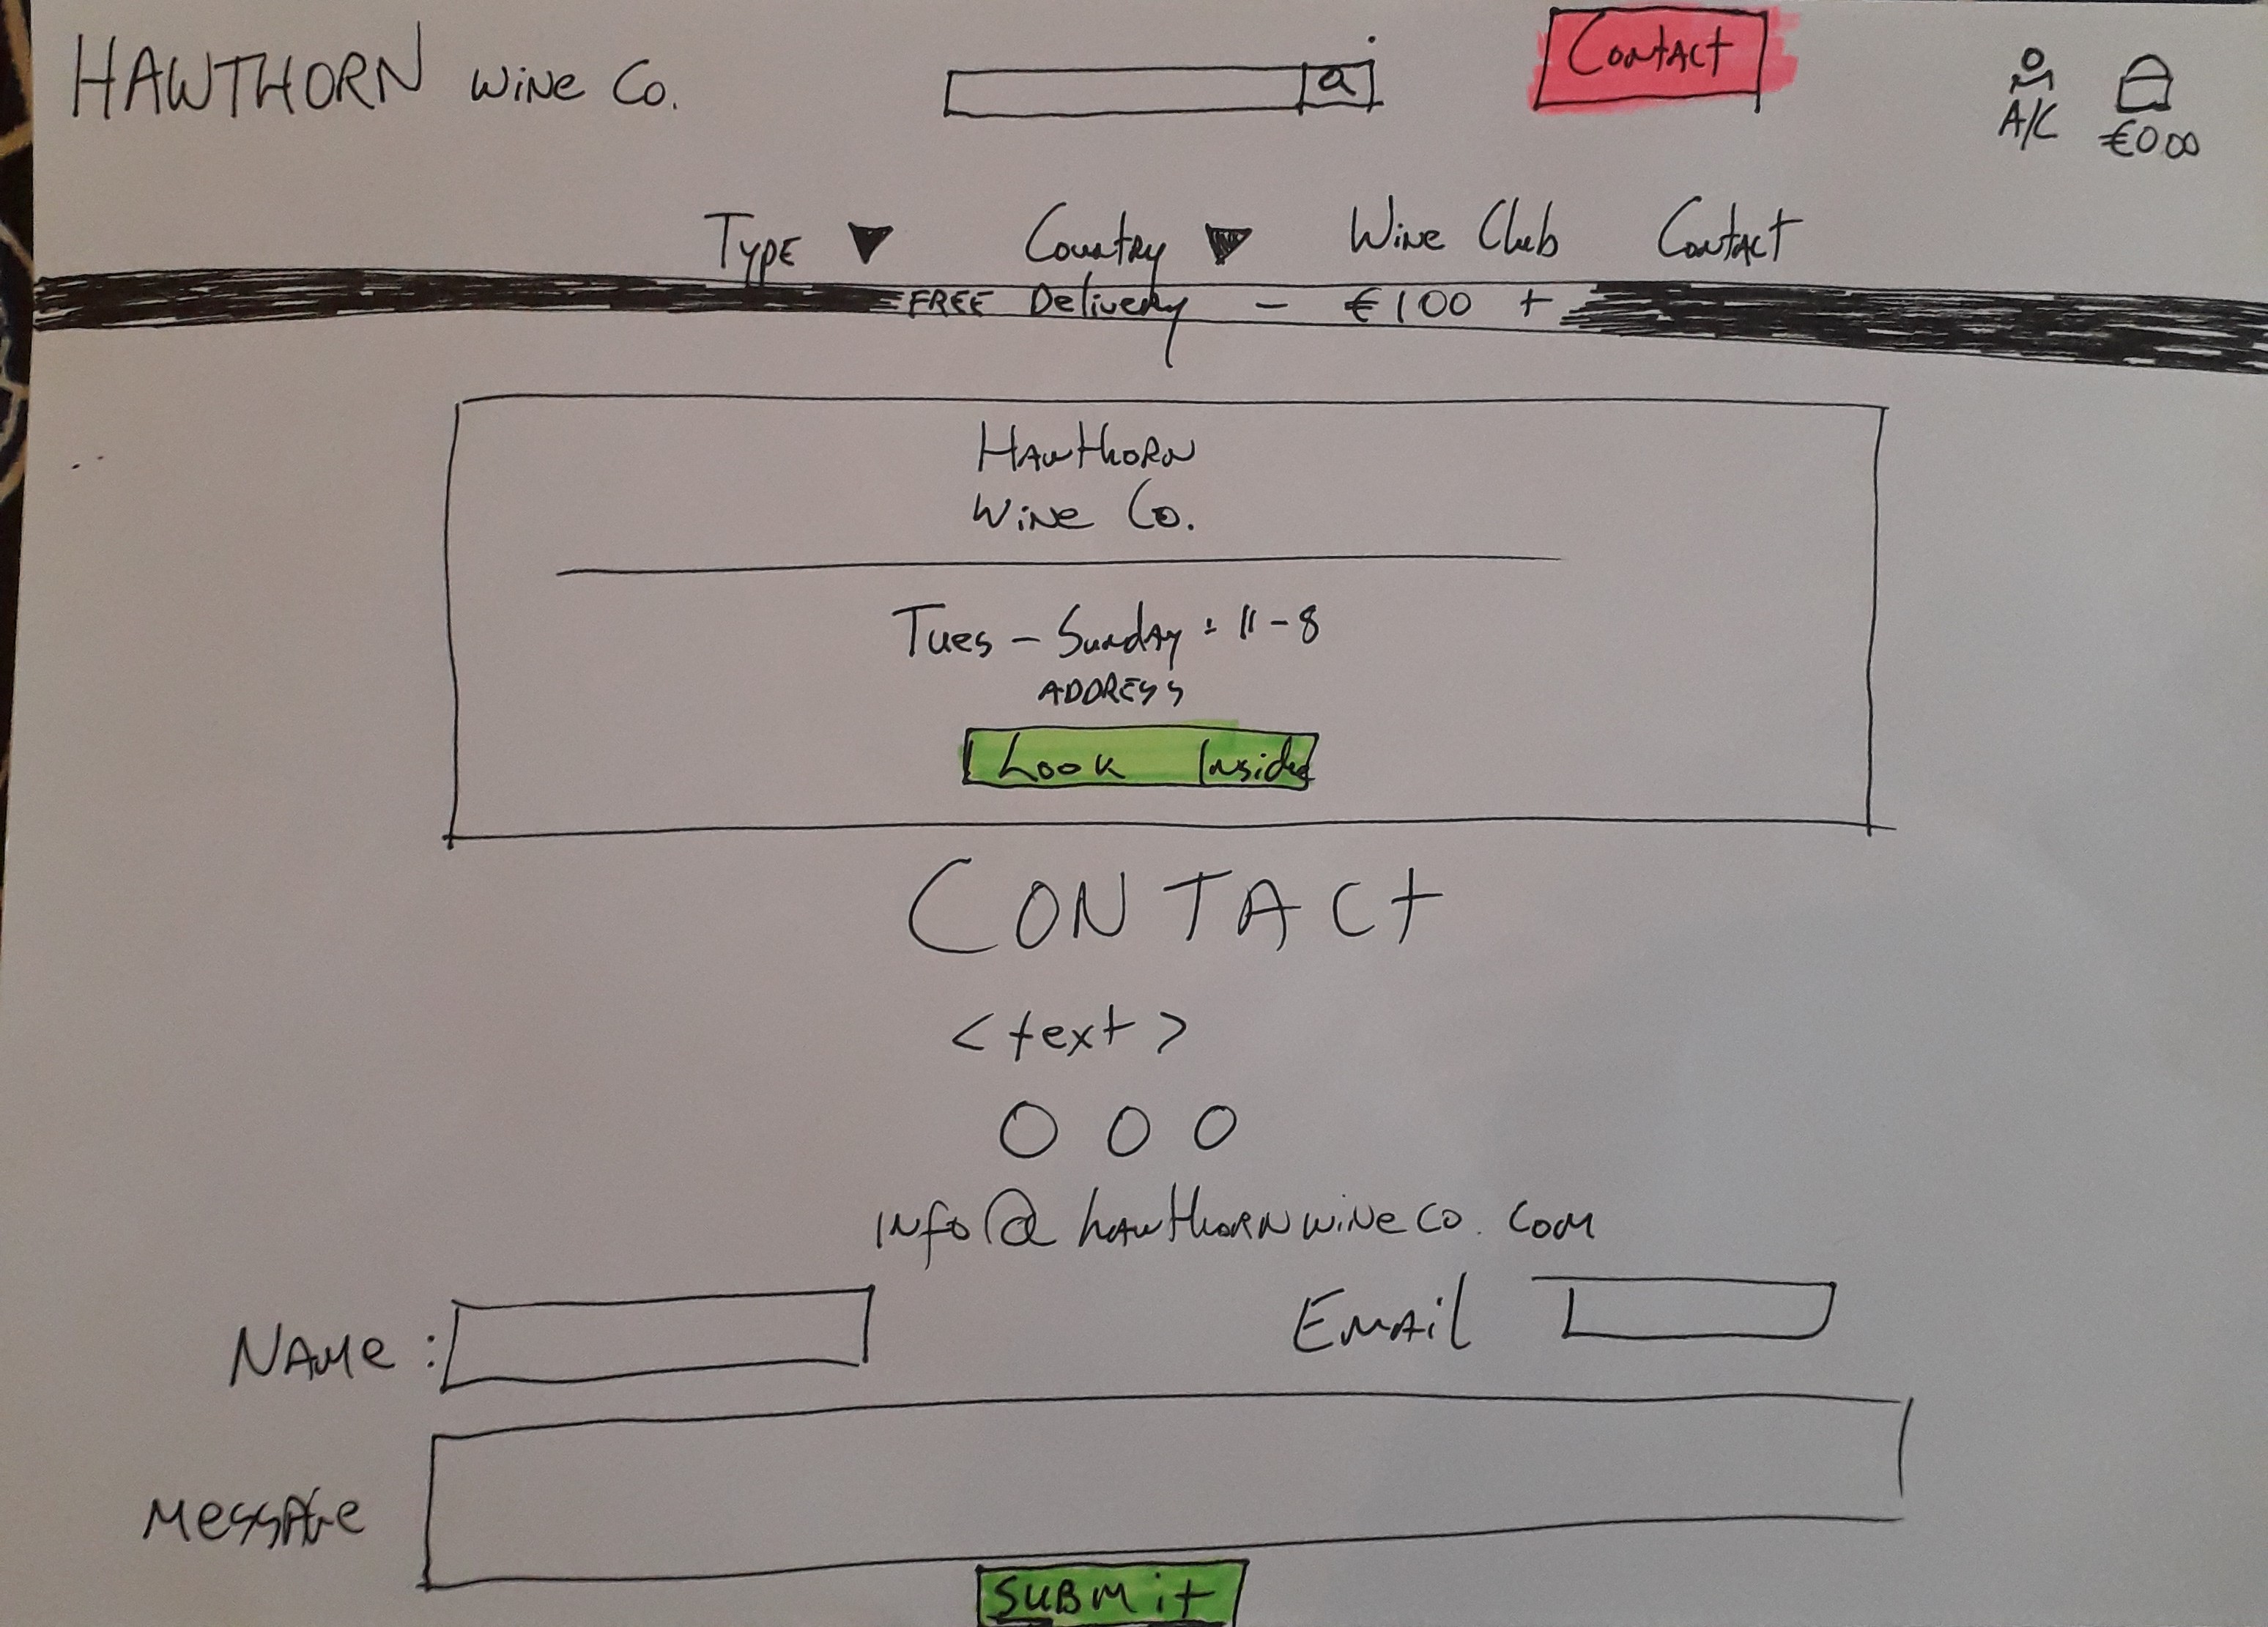 HAWTHORN Wine Co.
Contact
A/C
€000
Type Country Wine Club Contact
FREE Delivery - €100 +
Hawthorn
Wine Co.
Tues - Sunday : 11-8
ADDRESS
Look Inside
CONTACt
<text>
info@hawthornwineco.com
Name :
Email
Message
SUBMit